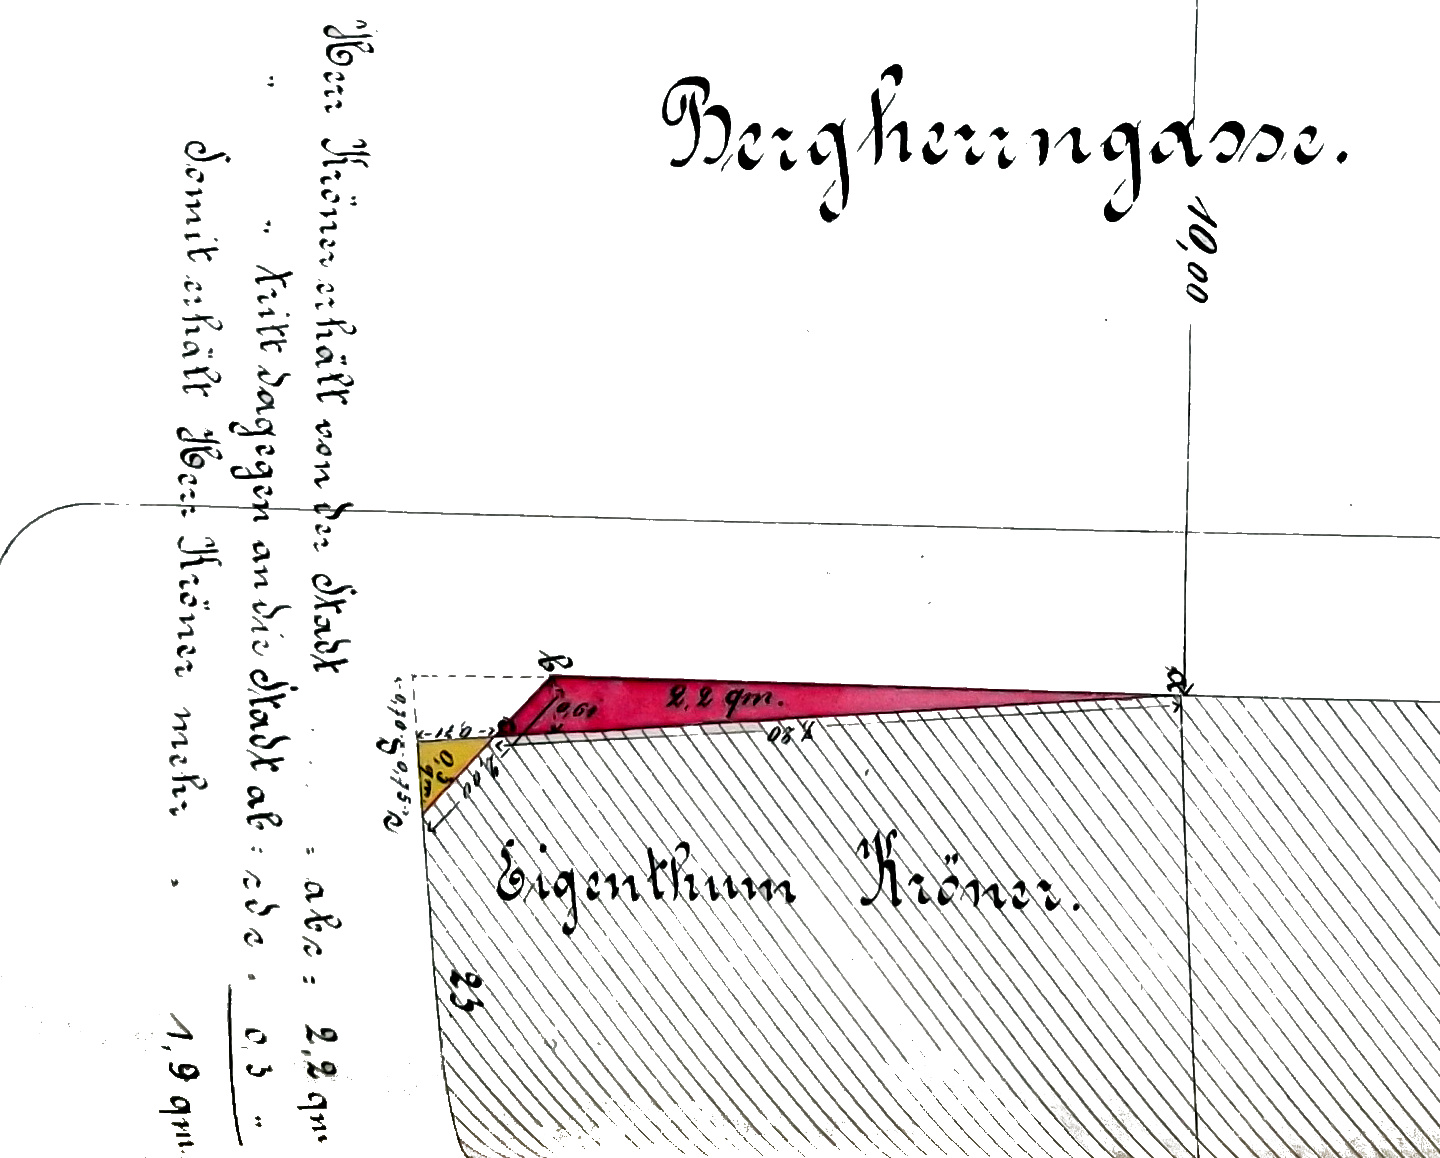 Herr Kröner erhält von der Stadt = abc = 2,2 qm
" " tritt dagegen an die Stadt ab: cde = 0,3 "
Somit erhält Herr Kröner mehr 1,9 qm.
Bergherrngasse.
10,00
b
a
2,2 qm.
0,60
7,20
c
0,71
0,70
d
0,75
e
0,3 qm
1,00
Eigenthum Kröner.
23